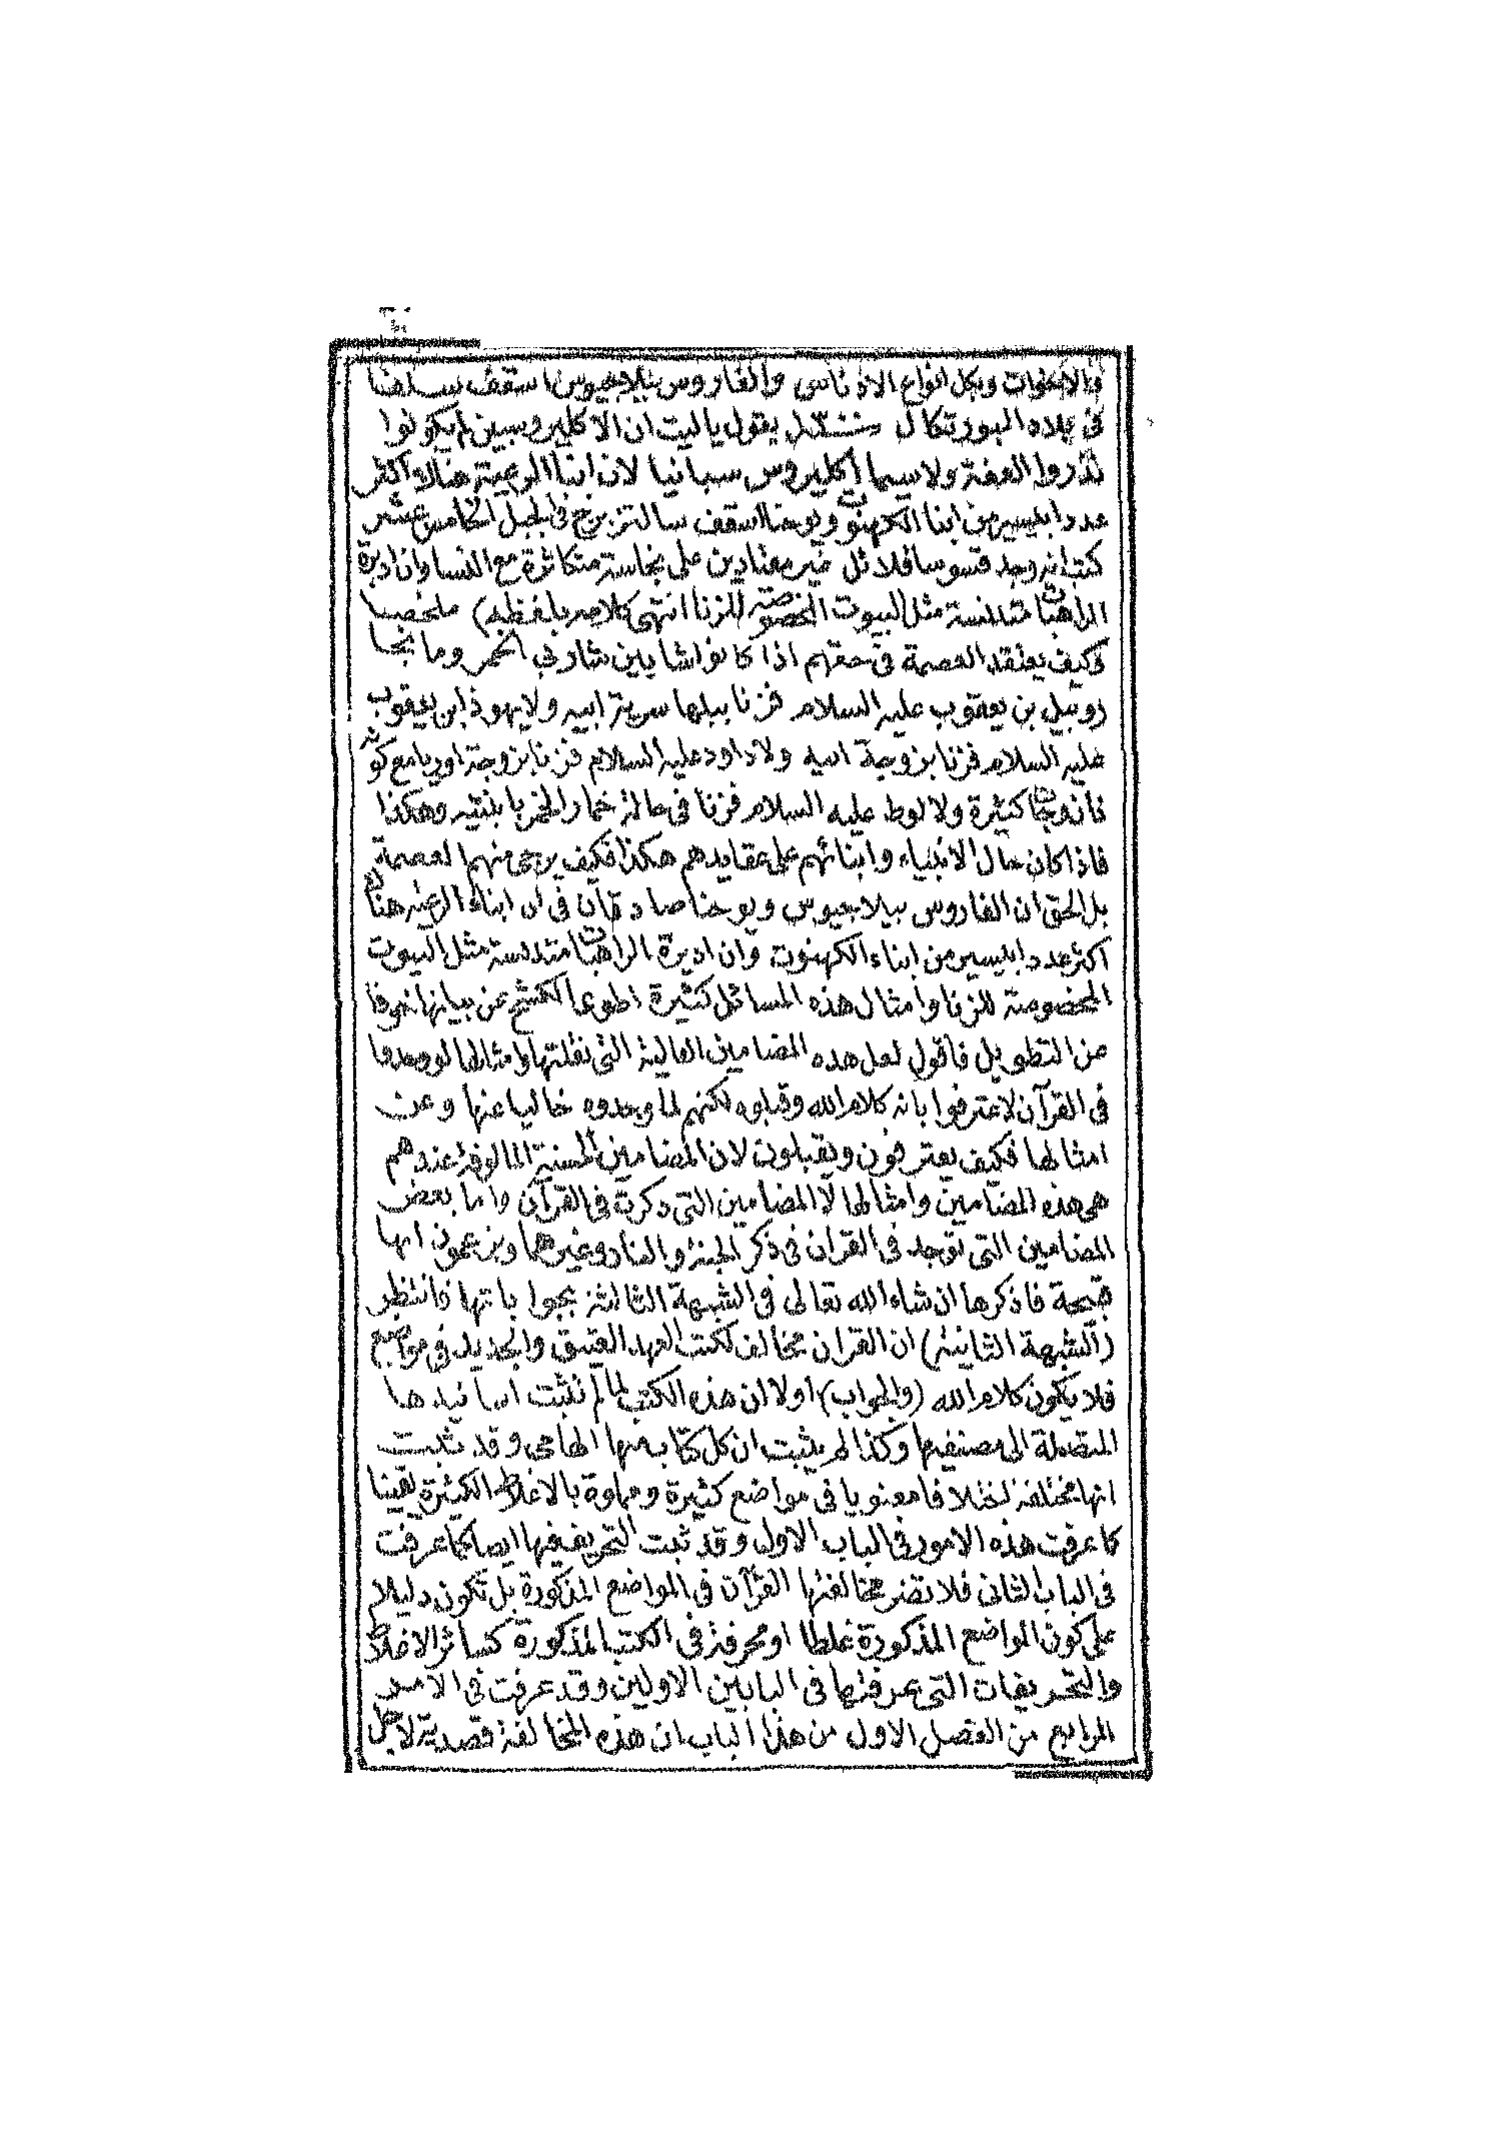 والاخوات وبكل انواع الادناس والفاروس بيلاجيوس اسقف سلفا
فى بلاد البورتكال سنة يقول ياليت ان الاكليروسيين لم يكونوا
نذروا العفة ولا سيما اكليروس سبانيا لان ابنا الرعية هناك اكثر
عددا بيسير من ابنا الكهنوت ويوحنا اسقف سالتزبرج فى الجيل الخامس عشر
كتب انه وجد قسوسا قلائل غير معتادين على نجاسة متكاثرة مع النسا وان اديرة
الراهبات متدنسة مثل البيوت المخصوصة للزنا انتهى كلامه بلفظه) ملخصا
فكيف يعتقد العصمة فى حقهم اذا كانوا شابين شاربي الخمر وما نجا
روبيل بن يعقوب عليه السلام فزنا ببلها سرية ابيه ولا يهوذا بن يعقوب
عليه السلام فزنا بزوجة ابنه ولا داود عليه السلام فزنا بزوجة اوريا مع كونه
ذا زوجات كثيرة ولا لوط عليه السلام فزنا فى حالة خمار الخمر بابنتيه وهكذا
فاذا كان حال الانبياء وابنائهم على عقايدهم هكذا فكيف يرجى منهم العصمة
بل الحق ان الفاروس بيلاجيوس ويوحنا صادقان فى ان ابناء الرعية هناك
اكثر عددا بيسير من ابناء الكهنوت وان اديرة الراهبات متدنسة مثل البيوت
المخصوصة للزنا وامثال هذه المسائل كثيرة اطوى الكشح عن بيانها خوفا
من التطويل فاقول لعل هذه المضامين العالية التى نقلتها وامثالها لو وجدوا
فى القرآن لاعترفوا بانه كلام الله وقبلوه لكنهم لما وجدوه خاليا عنها وعن
امثالها فكيف يعترفون ويقبلون لان المضامين الحسنة المالوفة عندهم
هى هذه المضامين وامثالها لا المضامين التى ذكرت فى القرآن واما بعض
المضامين التى توجد فى القران فى ذكر الجنة والنار وغيرهما ويزعمون انها
قبيحة فاذكرها ان شاء الله تعالى فى الشبهة الثالثة بجواباتها فانتظر
(الشبهة الثانية) ان القران مخالف لكتب العهد العتيق والجديد فى مواضع
فلا يكون كلام الله (والجواب) اولا ان هذه الكتب لما لم تثبت اسانيدها
المتصلة الى مصنفيها وكذا لم يثبت ان كل كتاب منها الهامى وقد ثبت
انها مختلفة اختلافا معنويا فى مواضع كثيرة ومملوة بالاغلاط الكثيرة يقينا
كما عرفت هذه الامور فى الباب الاول وقد ثبت التحريف فيها ايضا كما عرفت
فى الباب الثانى فلا تضر مخالفتها القرآن فى المواضع المذكورة بل تكون دليلا
على كون المواضع المذكورة غلطا او محرفة فى الكتب المذكورة كسائر الاغلاط
والتحريفات التى عرفتها فى البابين الاولين وقد عرفت فى الامر
الرابع من الفصل الاول من هذا الباب ان هذه المخالفة قصدية لاجل